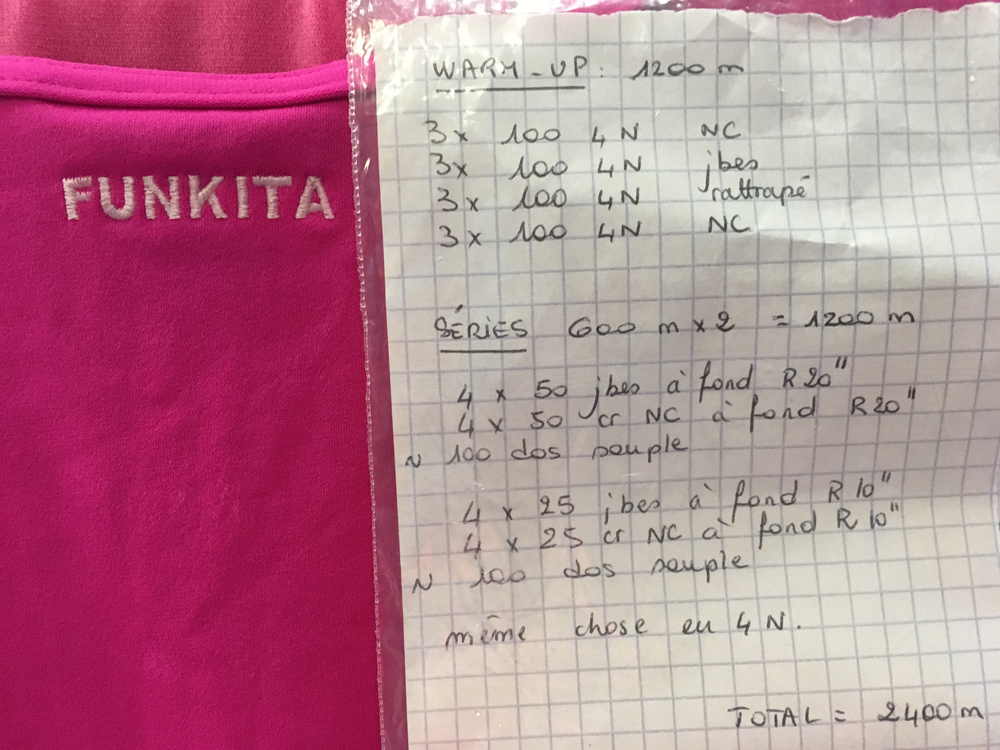 FUNKITA
WARM-UP: 1200 m
3x 100 4N NC
3x 100 4N jbes
3x 100 4N rattrapé
3x 100 4N NC
SÉRIES 600 m x 2 = 1200 m
4 x 50 jbes à fond R20"
4 x 50 cr NC à fond R20"
N 100 dos souple
4 x 25 jbes à fond R10"
4 x 25 cr NC à fond R10"
N 100 dos souple
même chose en 4N.
TOTAL = 2400 m